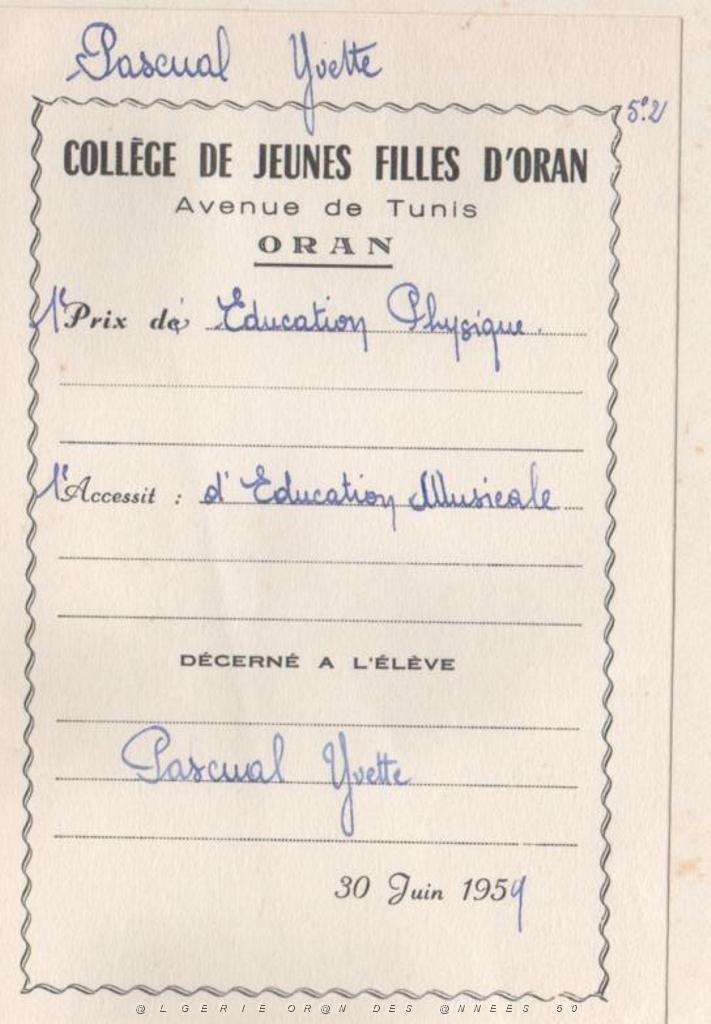 Pascual Yvette
5e.2
COLLÈGE DE JEUNES FILLES D'ORAN
Avenue de Tunis
ORAN
1e Prix de Education Physique.
1e Accessit : d'Education Musicale
DÉCERNÉ A L'ÉLÈVE
Pascual Yvette
30 Juin 1959
@LGERIE OR@N DES @NNEES 50